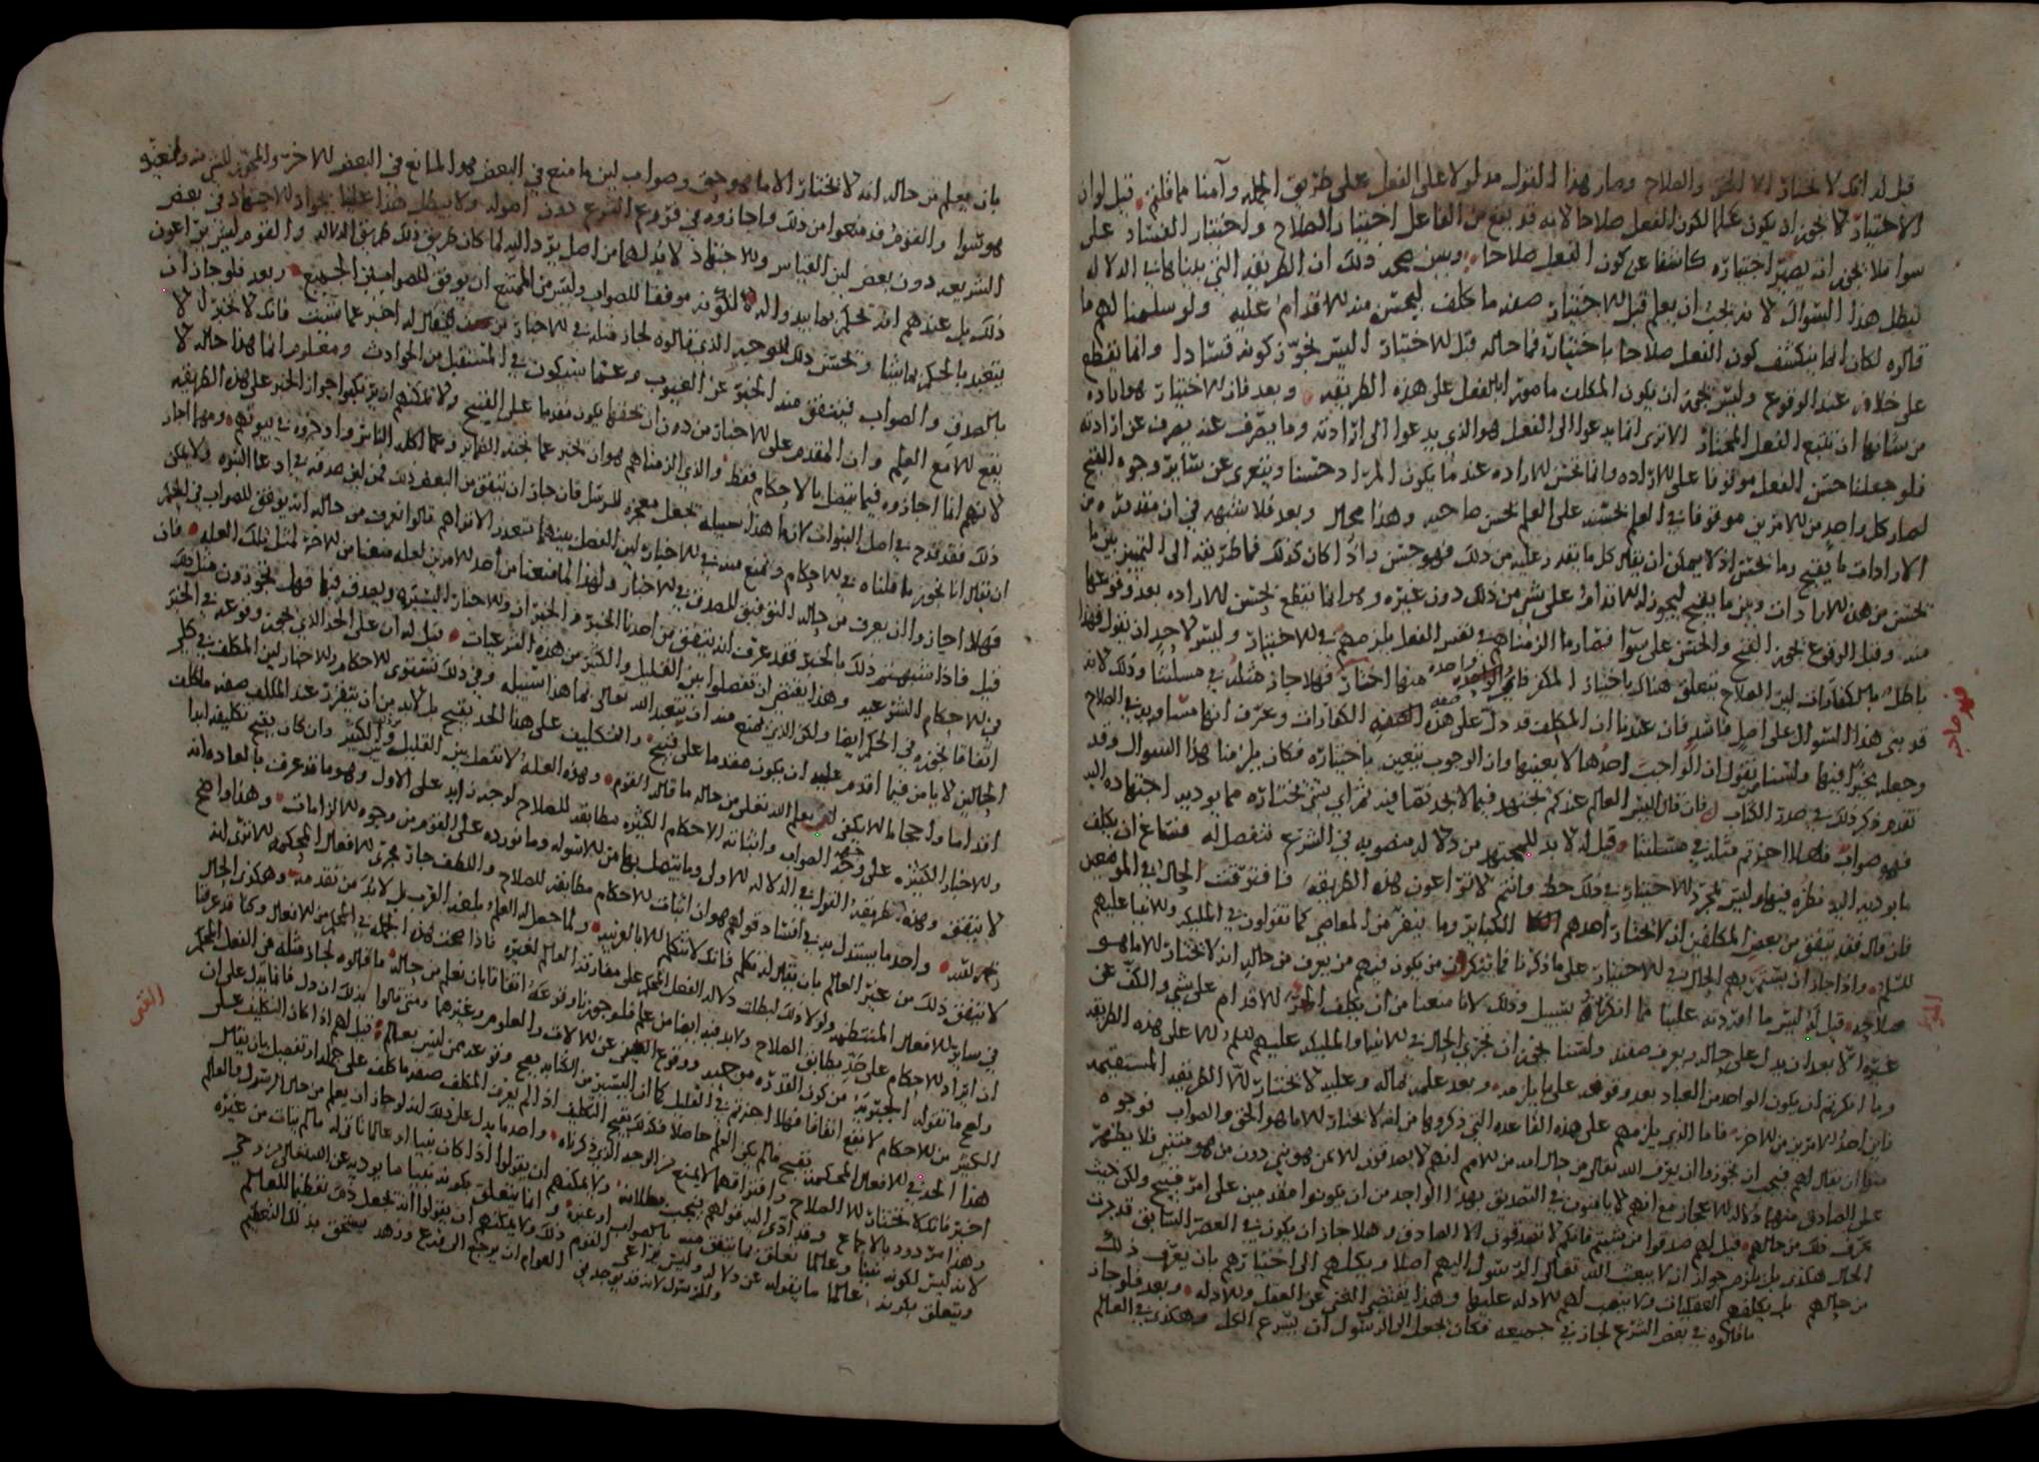 قيل له انك لا تختار الا الحق والصلاح وصار هذا القول مدلولا على الفعل على طريق الجمله وآمنا ما قلتم قيل لو ان
الاختيار لا يجوز ان يكون علما لكون الفعل صلاحا لانه قد يقع من الفاعل اختيار الصلاح واختيار الفساد على
سوا فلا يجوز ان يصير اختياره كاشفا عن كون الفعل صلاحا ويبين صحه ذلك ان الطريقه التي بينا كان الدلاله
تبطل هذا السؤال لانه يجب ان يعلم قبل الاختيار صفه ما كلف ليحسن منه الاقدام عليه ولو سلمنا لهم ما
قالوه لكان انما ينكشف كون الفعل صلاحا باختياره فما حاله قبل الاختيار اليس يجوز كونه فسادا وانما يقطع
على خلافه عند الوقوع وليس يجوز ان يكون المكلف مامورا بالفعل على هذه الطريقه وبعد فان الاختيار هو اراده
من شانها ان تتبع الفعل المختار الا ترى انما يدعوا الى الفعل هو الذي يدعوا الى ارادته وما يصرف عنه يصرف عن ارادته
فلو جعلنا حسن الفعل موقوفا على الاراده وانما تحسن الاراده عند ما يكون المراد حسنا ويتعرى عن سائر وجوه القبح
لصار كل واحد من الامرين موقوفا في العلم بحسنه على العلم بحسن صاحبه وهذا محال وبعد فلا شبهه في ان مقدوره من
الارادات ما يقبح وما يحسن اذ لا يمكن ان يقال كل ما يقدر عليه من ذلك فهو حسن واذا كان كذلك فما طريقه الى التمييز بين ما
يحسن من هذه الارادات وبين ما يقبح ليجوز له الاقدام على شي من ذلك دون غيره وهو انما يقطع بحسن الاراده بعد وقوعها
منه وقبل الوقوع يجوز القبح والحسن على سوا فصار ما الزمناهم في نفس الفعل يلزمهم في الاختيار وليس لاحد ان يقول فهذا
باطل بالكفارات ليس الصلاح يتعلق هناك باختيار المكفر فاي واحده منها اختار فهلا جاز مثله في مسئلتنا وذلك لانه
قد بنى هذا السؤال على اصل فاسد فان عندنا ان المكلف قد دل على هذه الصفه الكفارات وعرف انها متساويه في الصلاح
وجعله مخيرا فيها ولسنا نقول ان الواجب احدها لا بعينها وان الوجوب يتعين باختياره فكان يلزمنا هذا السؤال وقد
تقدم ذكر ذلك في صدر الكتاب فان قال اليس العالم عندكم يجتهد فيما لا يجد نصا فيه فمراي شي يختاره مما يوديه اجتهاده اليه
فهو صواب فهلا اجزتم مثله في مسئلتنا قيل له لا بد للمجتهد من دلاله منصوبه في الشرع تنفصل له فساغ ان يكلف
ما يوديه اليه نظره فيها وليس لمجرد الاختيار في ذلك حظ وانتم لا تراعون هذه الطريقه فافترقت الحال في الموضعين
فان قال فقد يتفق من بعض المكلفين ان لا يختار احدهم الكباير وما ينفر من المعاصي كما تقولون في المليكه والانبيا عليهم
السلم واذا جاز ان يستمر بهم الحال في الاختيار على ما ذكرنا فما تنكرون من ان يكون فيهم من يعرف من حاله انه لا يختار الا ما هو
صلاح قيل له ليس ما اوردته علينا مما انكرناه بسبيل وذلك لانا منعنا من ان يكلف المر الاقدام على شي والكف عن
غيره الا بعد ان يدل على حاله ويعرف صفته ولسنا نجوز ان تجري الحال في الانبيا والمليكه عليهم السلم الا على هذه الطريقه
وما انكرتم ان يكون الواحد من العباد بعد وقوفه على ما يلزمه وبعد علمه بماله وعليه لا يختار الا الطريقه المستقيمه
فاين احد الامرين من الاخر فاما الذي يلزمهم على هذه القاعده التي ذكروها من انه لا يختار الا ما هو الحق والصواب فوجوه
منها ان يقال لهم فيجب ان تجوزوا ان يعرف الله تعالى من حال امه من الامم انهم لا يصدقون الا من هو نبي دون من هو متنبي فلا يظهر
على الصادق منها دلاله الاعجاز مع انهم لا يامنون في التصديق بهذا الواحد من ان يكونوا مقدمين على امر قبيح ولكن حيث
عرف ذلك من حالهم قيل لهم صدقوا من شئتم فانكم لا تصدقون الا الصادق وهلا جاز ان يكون في العصر السابق قد جرت
الحال هكذا بل يلزم جواز ان لا يبعث الله تعالى الرسول اليهم اصلا ويكلهم الى اختيارهم بان يعرف ذلك
من حالهم بل يكلفهم العقليات ولا ينصب لهم الادله عليها وهذا يقتضي الغنى عن العقل والادله وبعد فلو جاز
ما قالوه في بعض الشرع لجاز في جميعه فكان يجعل الى الرسول ان يشرع الكل وهكذا في العالم
بان يعلم من حاله انه لا يختار الا ما هو حق وصواب لين ما منع في البعض هو المانع في البعض الاخر والمجوز للشي منه
هو سوا والقوم قد منعوا من ذلك واجازوه في فروع الشرع دون اصوله ولا يبطل هذا علينا بجواز الاجتهاد في بعض
الشريعه دون بعض لين القياس والاجتهاد لا بد لهما من اصل يرد اليه لما كان طريق ذلك طريق الدلاله والقوم ليس يراعون
ذلك بل عندهم انه تحكم بما يبدوا له لكونه موفقا للصواب وليس من الممتنع ان يوفق للصواب في الجميع وبعد فلو جاز ان
يتعبد بالحكم بما شا ويحسن ذلك للوجه الذي قالوه لجاز مثله في الاخبار فيقال له اخبر عما شئت فانك لا تخبر الا
بالصدق والصواب فيتفق منه الخبر عن الغيوب وعما سيكون في المستقبل من الحوادث ومعلوم ان ما هذا حاله لا
يقع الا مع العلم وان المقدم على الاخبار من دون ان يحقها يكون مقدما على القبيح ولا يمكنهم ان يرتكبوا جواز الخبر على هذه الطريقه
لانهم انما اجازوه فيما يتصل بالاحكام فقط والذي الزمناهم هو ان يخبر عما يجنه الضماير وعما اكله الناس وادخروه في بيوتهم ومهما اجازوا
ذلك فقد قدح في اصل النبوات لان ما هذا سبيله يجعل معجزه للرسل فان جاز ان يتفق من البعض ذلك فمن اين صدقه في ادعا النبوه ولا يمكن
ان يقال انا نجوز ما قلناه في الاحكام ونمنع منه في الاخبار لين الفصل بينهما متعذر الا تراهم قالوا نعرف من حاله انه يوفق للصواب في الحكم
فهلا اجازوا ان يعرف من حاله التوفيق للصدق في الاخبار ولهذا لما منعنا من احد الامرين لعله منعنا من الاخر لمثل تلك العله فان
قيل فاذا شبهتم ذلك بالخبر فقد عرفت انه يتفق من احدنا الخبر والخبران والاخبار اليسيره ويصدق فيها فهل تجوزون مثل ذلك
في الاحكام الشرعيه وهذا يقتضي ان تفصلوا بين القليل والكثير من هذه الشرعيات قيل له ان على الحد الذي يجوز وقوعه في الخبر
اتفاقا نجوزه في الحكم ايضا ولكن الذي نمنع منه ان يتعبد الله تعالى بما هذا سبيله وفي ذلك تستوي الاحكام والاخبار لين المكلف في كلي
الحالين لا يامن فيما اقدم عليه ان يكون مقدما على قبيح والتكليف على هذا الحد يقبح بل لا بد من ان يتقرر عند المكلف صفه ما كلف
اقداما واحجاما ولا يكفي ان يعلم الله تعالى من حاله ما قال القوم وهذه العله لا تفصل بين القليل والكثير وان كان يقبح تكليفه ايما
والاخبار الكثيره على وجه الصواب واثباته الاحكام الكثيره مطابقه للصلاح لوجه زايد على الاول وهو ما قد عرف بالعاده انه
لا يتفق وهذه طريقه القول في الدلاله الاولى وما يتصل بها من الاسوله وما نورده على القوم من وجوه الالزامات وهذا واضح
واحد ما يستدل به في افساد قولهم هو ان اثبات الاحكام مطابقه للصلاح واللطف جار مجرى الافعال المحكمه الا ترى انه
لا يتفق ذلك من غير العالم بان يقال له تكلم فانك لا تتكلم الا بالعربيه ولما جعل له العلم بلغه العرب بل لا بد من تقدمه وهكذا الحال
في ساير الافعال المنتظمه ولولا ذلك لبطلت دلاله الفعل المحكم على مفارقه العالم لغيره فاذا صحت هذه الجمله في المحكم من الافعال وكنا قد عرفنا
ان ايراد الاحكام على حد يطابق الصلاح ولا بد فيه ايضا من علم فلو جوزنا وقوعه اتفاقا بان يعلم من حاله ما قالوه لجاز مثله في الفعل المحكم
ولصح ما تقوله المجبره من كون القدره موجبه ووقوع الفعل عن الالات والعلوم وغيرها ومتى قالوا بذلك ان دل فانما يدل على ان
الكثير من الاحكام لا يقع اتفاقا فهلا اجزتم في القليل كما ان اليسير من الكتابه يصح وقوعه ممن ليس بعالم قيل لهم اذا كان التكليف على
هذا الحد في الافعال المحكمه يقبح ما لم يكن العلم حاصلا فكذلك يقبح التكليف اذا لم يعرف المكلف صفه ما كلف على جمله او تفصيل بان يقال
اختر فانك لا تختار الا الصلاح وافتراقهما لا يمنع من الوجه الذي ذكرناه واحد ما يدل على ذلك انه لو جاز ان يعلم من حال الرسول والعالم
وهذا مردود بالاجماع وقد ادى اليه قولهم فيجب بطلانه ولا يمكنهم ان يقولوا اذا كان نبيا او عالما تاتى له ما لم يتات من غيره
لانه ليس لكونه نبيا وعالما تعلق بما يتفق منه بالصواب او غيره وانما يتعلق بكونه نبيا ما يوديه عن الله تعالى من وحي
ويتعلق بكونه عالما ما يقوله عن دلاله وليس يراعي القوم ذلك ولا يمكنهم ان يقولوا انه يجعل ذلك تعظيما للعالم
وللرسول لانه قد يوجد في العوام ان يرجع الى ورع وزهد يستحق بذلك التعظيم